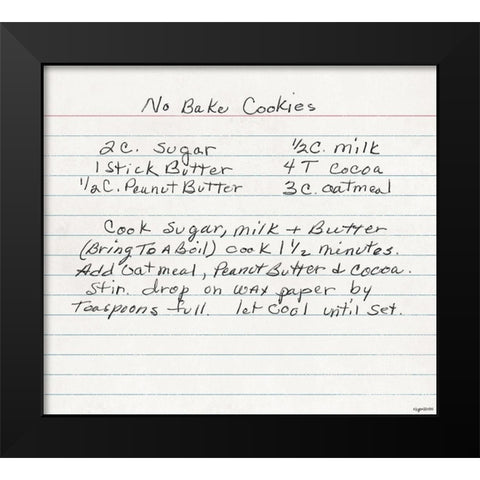 No Bake Cookies
2C. Sugar ½C. milk
1 Stick Butter 4 T cocoa
½C. Peanut Butter 3C. oatmeal
Cook Sugar, milk + Butter
(Bring To A Boil) cook 1½ minutes.
Add oatmeal, Peanut Butter & cocoa.
Stir. drop on wax paper by
Teaspoons full. let cool until set.